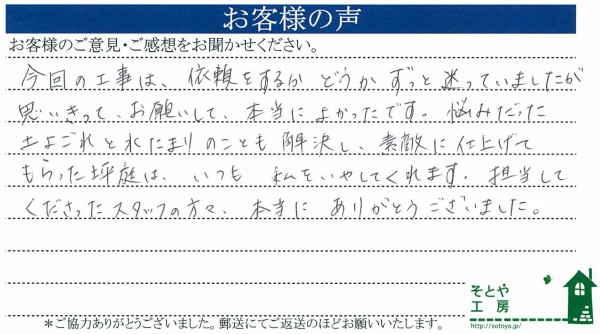 お客様の声
お客様のご意見・ご感想をお聞かせください。
今回の工事は、依頼をするか どうか ずっと 迷っていましたが
思いきって、お願いして、本当に よかったです。悩みだった
土よごれと水たまりのことも 解決し、素敵に 仕上げて
もらった 坪庭は、いつも 私を いやしてくれます。担当して
くださった スタッフの方々、本当に ありがとうございました。
そとや
工房
http://sotoya.jp/
＊ご協力ありがとうございました。郵送にてご返送のほどお願いいたします。